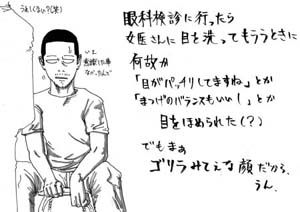 うれしくない?(笑)
いえ
眼科検診に行ったら
女医さんに目を洗ってもらうときに
何故か
「目がパッチリしてますね」とか
「まつげのバランスもいい!」とか
目をほめられた(?)
でもまぁ
ゴリラみてぇな顔だから。
うん。